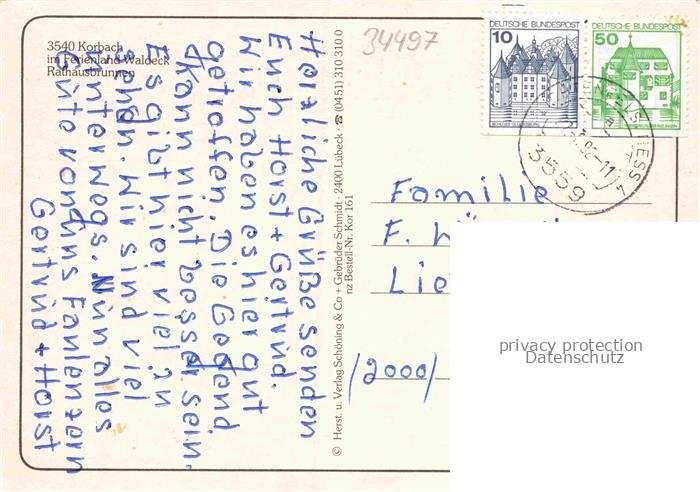 3540 Korbach
im Ferienland Waldeck
Rathausbrunnen
34497
DEUTSCHE BUNDESPOST
10
SCHLOSS GLÜCKSBURG
DEUTSCHE BUNDESPOST
50
3559
Herzliche Grüße senden
Euch Horst + Gertrud.
Wir haben es hier gut
getroffen. Die Gegend
kann nicht besser sein.
Es gibt hier viel zu
sehen. Wir sind viel
unterwegs. Nun alles
Gute von uns Faulenzern
Gertrud + Horst
© Herst. u. Verlag Schöning & Co + Gebrüder Schmidt · 2400 Lübeck · ☎ (0451) 310 310 0
nz Bestell-Nr. Kor 161
Familie
F.
Lie
(2000)
privacy protection
Datenschutz